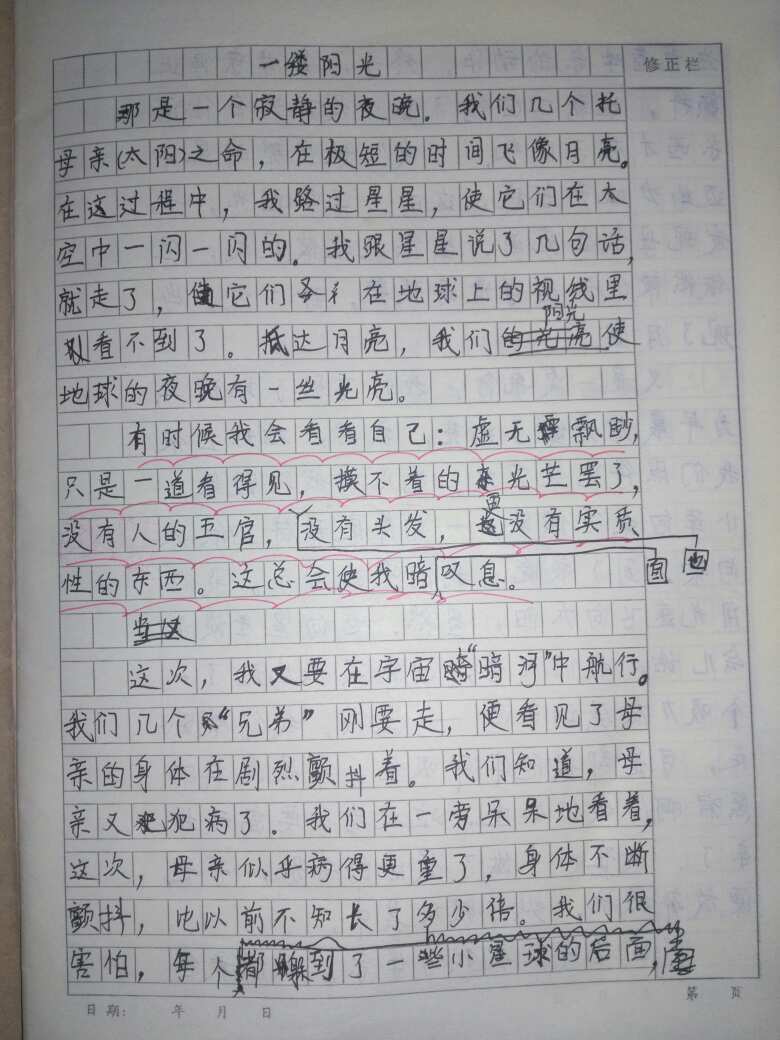 一缕阳光
修正栏
那是一个寂静的夜晚。我们几个托
母亲(太阳)之命，在极短的时间飞像月亮。
在这过程中，我路过星星，使它们在太
空中一闪一闪的。我跟星星说了几句话，
就走了，使它们在地球上的视线里
看不到了。抵达月亮，我们的阳光使
地球的夜晚有一丝光亮。
有时候我会看看自己：虚无飘眇，
只是一道看得见，摸不着的光芒罢了，
没有人的五官，没有头发，一更没有实质
性的东西。这总会使我暗叹息。
自 也
这次，我又要在宇宙“暗河”中航行。
我们几个“兄弟”刚要走，便看见了母
亲的身体在剧烈颤抖着。我们知道，母
亲又犯病了。我们在一旁呆呆地看着，
这次，母亲似乎病得更重了，身体不断
颤抖，比以前不知长了多少倍。我们很
害怕，每个都躲到了一些小星球的后面，
日期： 年 月 日
第 页